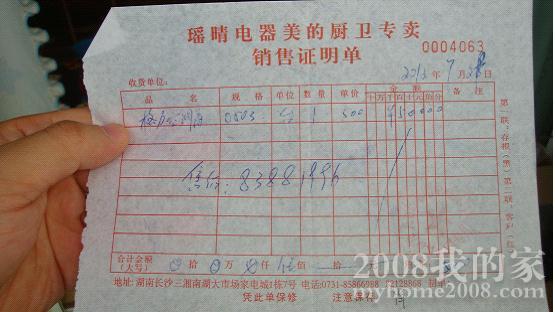 瑶晴电器美的厨卫专卖
销售证明单
0004063
2013年7月28日
收货单位:
品 名 规 格 单位 数量 单价 金 额 备 注
十万千百十元角分
0503 台 1 500 ¥50000
售后: 83881996
第一联:存根(黑) 第二联:客户(红)
合计金额
(大写) 0拾0万0仟伍佰 拾
地址: 湖南长沙三湘南湖大市场家电城1栋7号 电话:0731-85866988
凭此单保修 注意保存
2008我的家
myhome2008.com